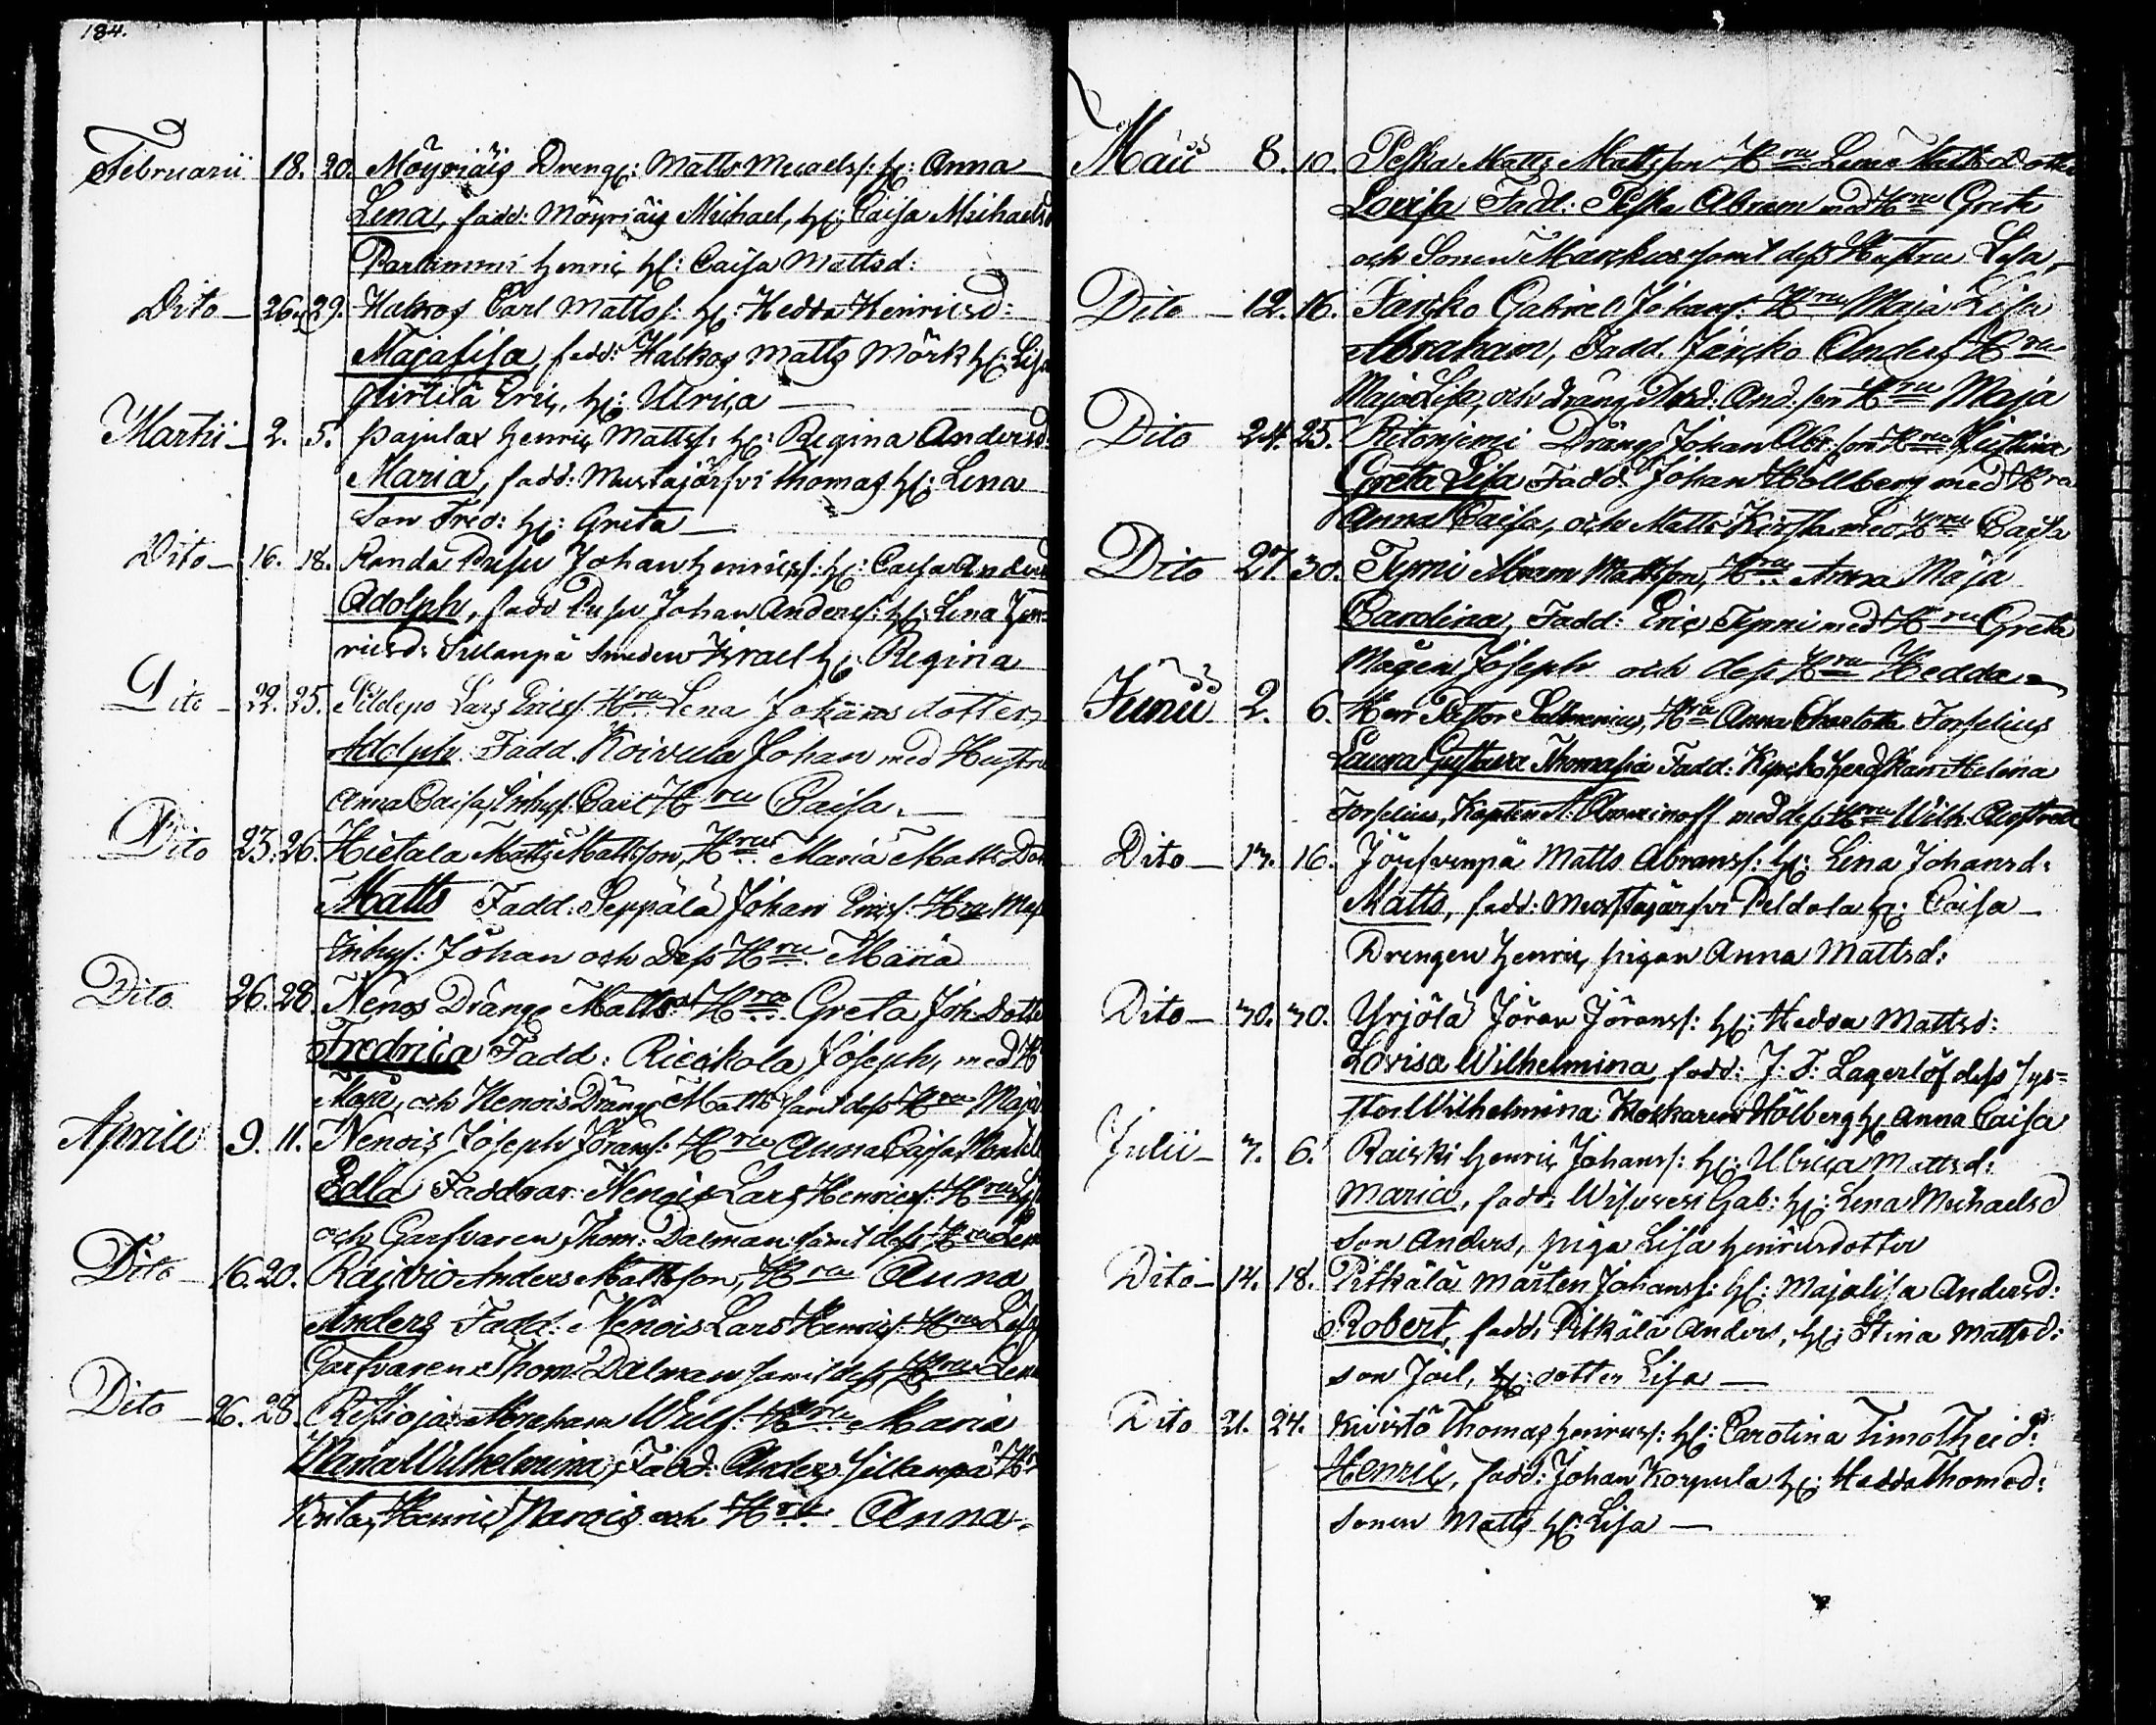 184.
Februarii 18. 20. Möyriäis Dreng: Matts Micaelss: H: Anna
Lena, fadd: Möyriäis Michael, H: Caisa Michaelsd
Partammi Henric H: Caisa Mattsd:
Dito 26. 29. Halkos Carl Mattss: H: Hedda Henricsd:
Majalisa, fadd: Halkos Matts Mörk H: Lisa
Eric, H: Ulrica
Martii 2. 5. Pajulax Henric Mattss: H: Regina Andersd:
Maria, fadd: Mustajärfvi Thomas H: Lena
Son Fred: H: Greta
Dito 16. 18. Randa Pusu Johan Henricss: H: Caisa Andersd
Adolph, fadd Pusu Johan Anderss: H: Lena Hen=
ricsd: Sillanpä Smeden Israel H: Regina
Dito 22. 25. Lars Ericss. Hru Lena Johans dotter
Adolph. Fadd. Koivula Johan med Hustru
Anna Caisa, Inhys: Carl Hru Caisa.
Dito 23. 26. Hietala Matts Mattsson, Hru Maria Matts Dot
Matts Fadd: Seppälä Johan Ericss. Hru
Inhys: Johan och dess Hru Maria
Dito 26. 28. Nenos Dräng Matts Hru Greta Joh. Dotte
Fredrica Fadd: Joseph, med H
Maja, och Nenois Dräng Matts samt dess Hru Maja
Aprill 9. 11. Nenois Joseph Jöranss: Hru Anna Caisa
Edla Faddrar Nenois Lars Henricss: Hru Lisa
och Garfvaren Thom: Dalman samt dess Hru Lena
Dito 16. 20. Raivio Anders Mattsson, Hru Anna
Anders Fadd: Nenois Lars Henricss: Hru Lisa
Garfvaren Thom: Dalman samt dess Hru Lena
Dito 26. 28. Ristioja Abraham Hru Maria
Maria Wilhelmina, Fadd: Anders Sillanpä Hr
Brita, Henric Marois och Hru Anna.
Maii 8. 10. Peska Matts Mattsson Hru Lena Matts Dotter
Lovisa Fadd: Peska Abram med Hru Greta
och Sonen Markus samt dess Hustru Lisa
Dito 12. 16. Jaisko Gabriel Johanss: Hru Maja Lisa
Abraham, Fadd. Jaisko Anders Hru
Maja Lisa, och dräng And: son Hru Maja
Dito 24. 25. Ritoniemi Dräng Johan Abr: son Hru Justina
Greta Lisa Fadd Johan Hollberg med Hru
Anna Caisa, och Matts med Hru Caisa
Dito 27. 30. Tynni Abram Mattsson, Hru Anna Maja
Carolina, Fadd: Eric Tynni med Hru Greta
Mågen Joseph och dess Hru Hedda
Junii 2. 6. Herr Pastor Hru Anna Charlotta Forselius
Laura Gustava Thomasia Fadd: Helena
Forselius, Kapten A: Amminoff med dess Hru Wilh:
Dito 13. 16. Jörfvenpä Matts Abramss: H: Lena Johansd:
Matts, fadd: Mustajärfvi Peldola H: Caisa
Drengen Henric, pigan Anna Mattsd:
Dito 30. 30. Yrjölä Jöran Jöranss: H: Hedda Mattsd:
Lovisa Wilhelmina, fadd: J. F. Lagerlöf dess sys=
ter Wilhelmina Klockaren Hölberg H: Anna Caisa
Julii 3. 6. Raiski Henric Johanss: H: Ulrica Mattsd:
Maria, fadd: Wisuvesi Gab: H: Lena Michaelsd
Son Anders, piga Lisa Henricsdotter
Dito 14. 18. Pitkälä Mårten Johanss: H: Majalisa Andersd:
Robert, fadd: Pitkälä Anders, H: Stina Mattsd:
son Joel, H: dotter Lisa
Dito 21. 24. Kivistö Thomas Henricss: H: Carolina Timotheid:
Henric, fadd: Johan Korpula H: Hedda Thomed:
sonen Matts H: Lisa